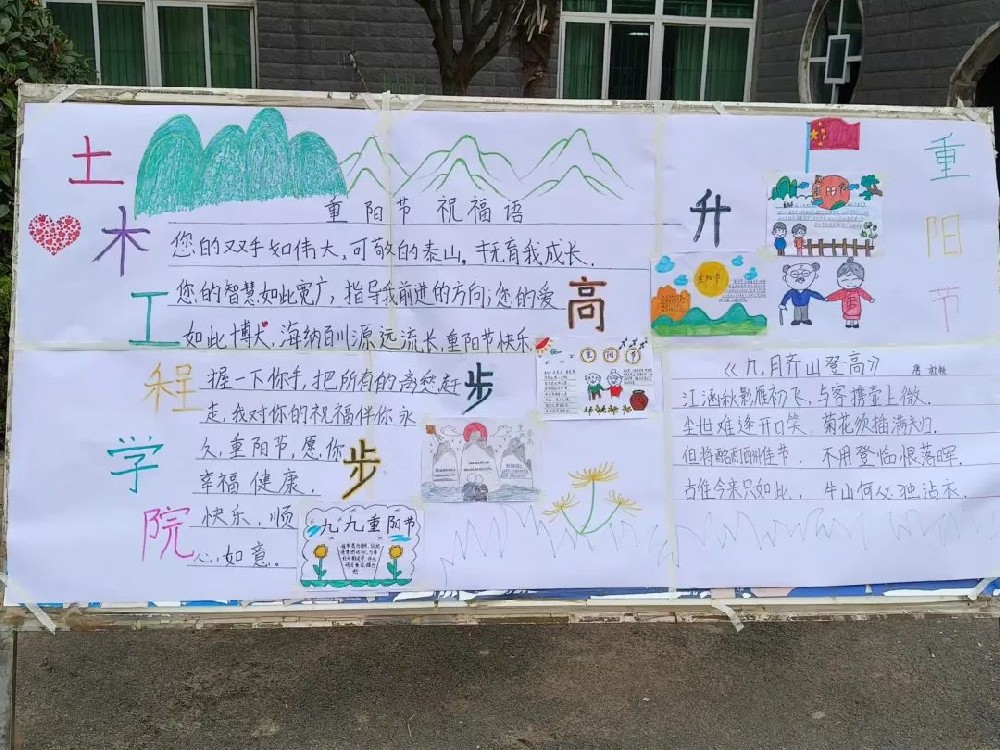 土木工程学院
重阳节祝福语
您的双手如伟大,可敬的泰山。抚育我成长.
您的智慧.如此宽广,指导我前进的方向;您的爱
如此博大,海纳百川源远流长,重阳节快乐
握一下你手,把所有的离愁赶
走,我对你的祝福伴你永
久,重阳节,愿你
幸福健康.
快乐.顺
心,如意.
步步高升
重阳节
重阳节
重阳节
九九重阳节
《九月齐山登高》 唐
江涵秋影雁初飞,与客携壶上翠微.
尘世难逢开口笑,菊花须插满头归.
但将酩酊酬佳节.不用登临恨落晖.
古往今来只如此.牛山何必独沾衣.